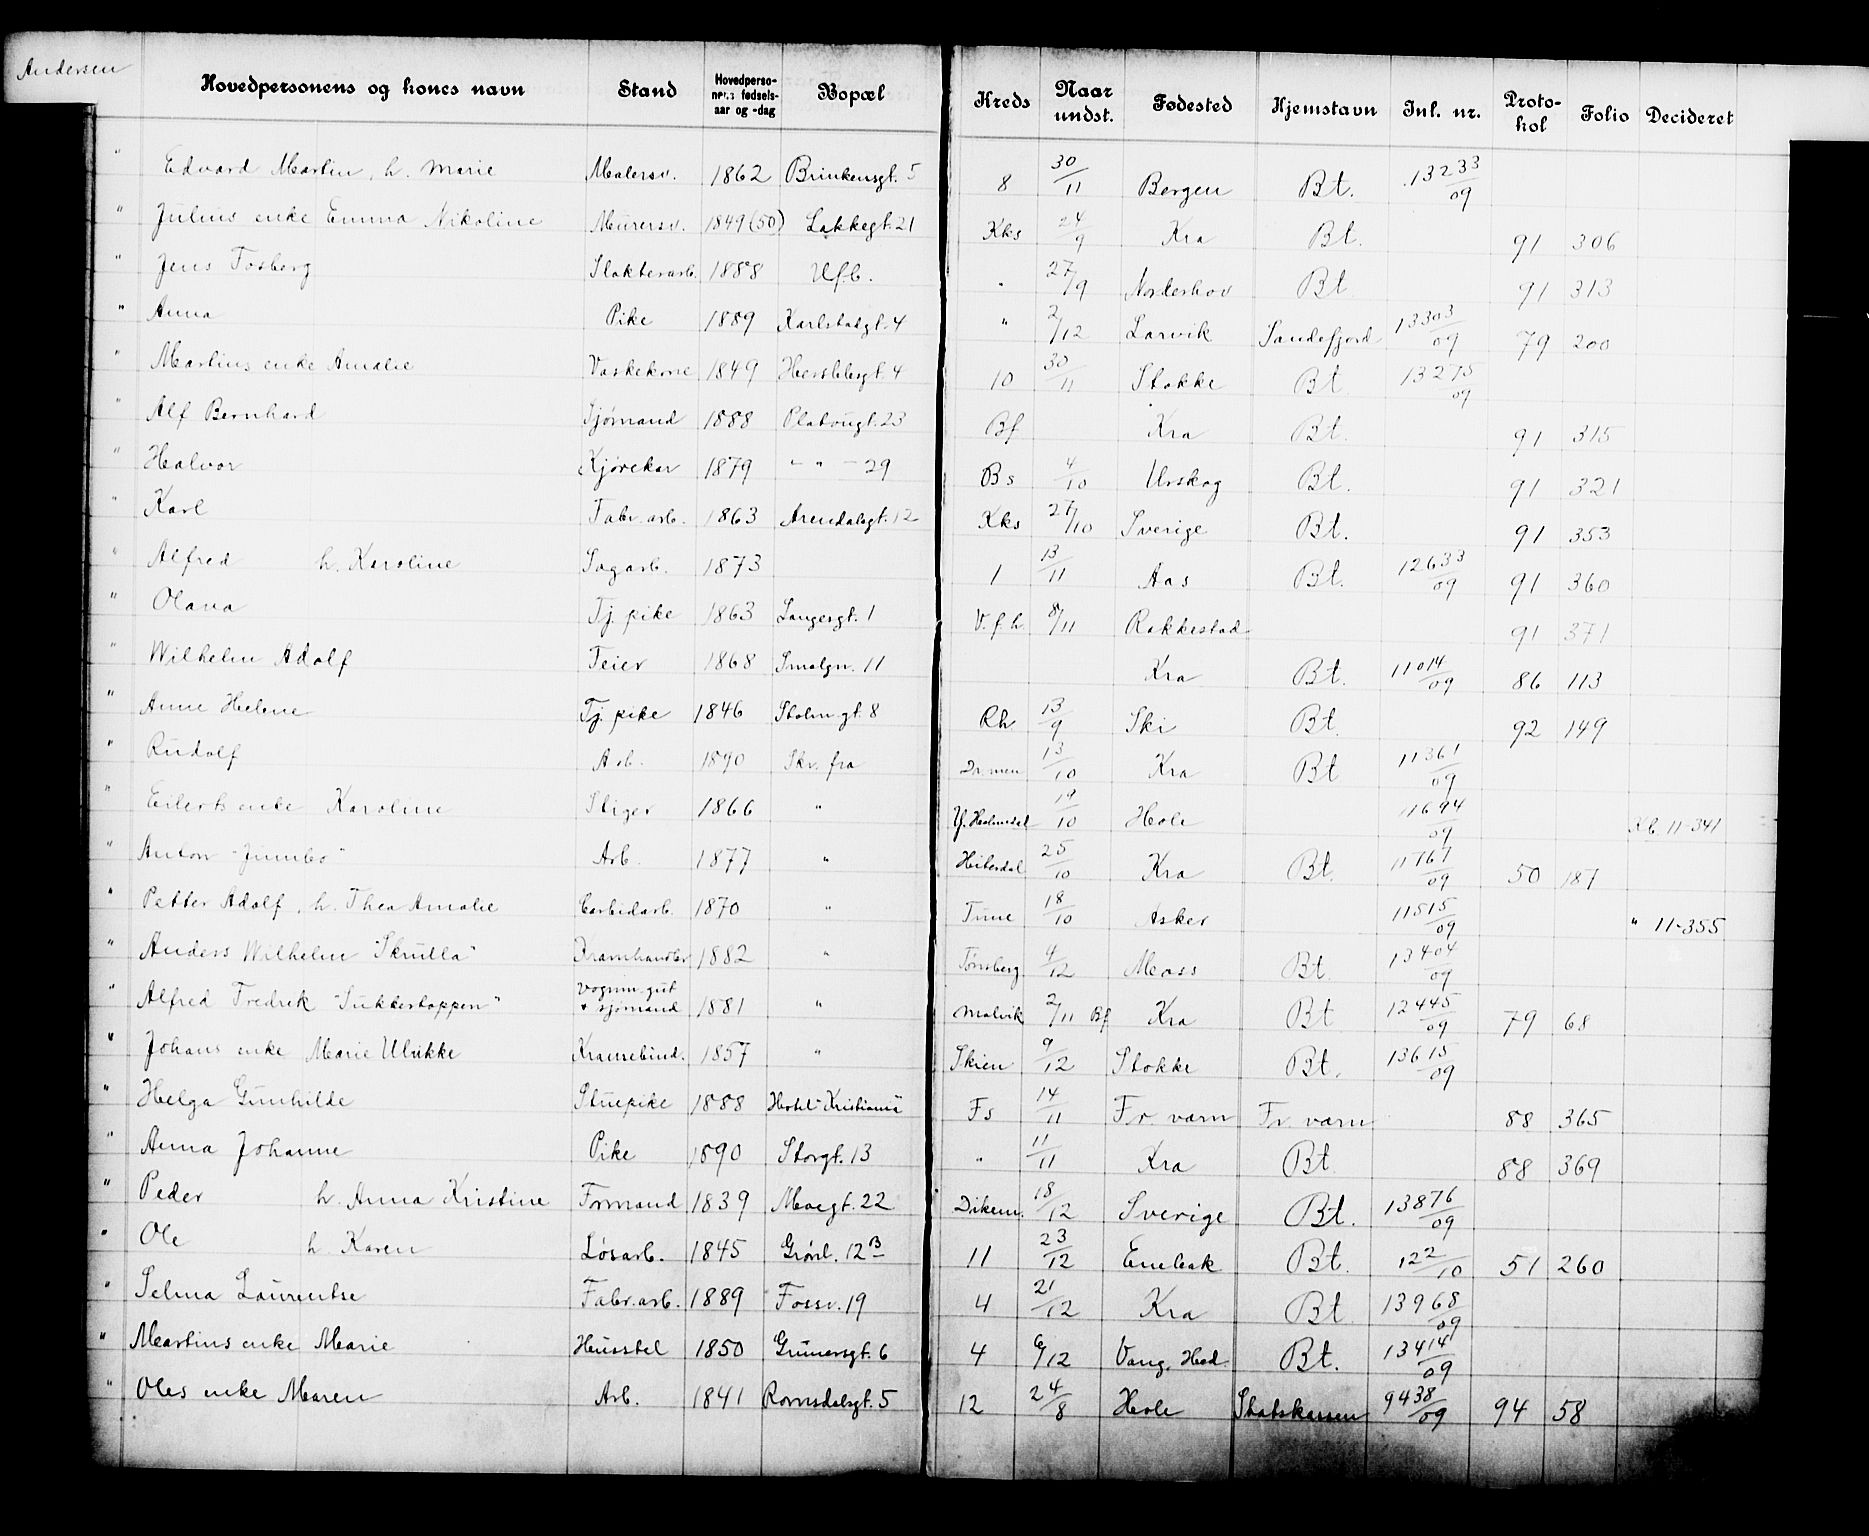 Andersen
Hovedpersonens og kones navn | Stand | Hovedpersonens fødsels-aar og -dag | Bopæl | Kreds | Naar undst. | Fødested | Hjemstavn | Int. nr. | Protokol | Folio | Decideret
" Edvard Martin, h. Marie | Malersv. | 1862 | Brinkensgt. 5 | 8 | 30/11 | Bergen | Bt. | 13233/09
" Julius enke Emma Nikoline | Murersv. | 1849 (50) | Lakkegt. 21 | Kks | 24/9 | Kra | Bt. | 91 | 306
" Jens Fosberg | Slakterarb. | 1888 | Ufb. | " | 27/9 | Norderhov | Bt | 91 | 313
" Anna | Pike | 1889 | Karlstadgt. 4 | " | 2/12 | Larvik | Sandefjord | 13303/09 | 79 | 200
" Martins enke Amalie | Vaskekone | 1849 | Herslebsgt. 4 | 10 | 30/11 | Stokke | Bt | 13275/09
" Alf Bernhard | Sjømand | 1888 | Platougt. 23 | Bf | Kra | Bt. | 91 | 315
" Halvor | Kjørekar | 1879 | - " - 29 | Bs | 4/10 | Urskog | Bt. | 91 | 321
" Karl | Fabr. arb. | 1863 | Arendalsgt. 12 | Kks | 27/10 | Sverige | Bt. | 91 | 353
" Alfred h. Karoline | Sagarb. | 1873 | 1 | 13/11 | Aas | Bt. | 12633/09 | 91 | 360
" Olava | Tj. pike | 1863 | Langesgt. 1 | V.f.h. | 8/11 | Rakkestad | 91 | 371
" Wilhelm Adolf | Feier | 1868 | Smalgn. 11 | Kra | Bt. | 11014/09 | 86 | 113
" Anne Helene | Tj. pike | 1846 | Stolm.gt. 8 | Rh. | 13/9 | Ski | Bt. | 92 | 149
" Rudolf | Arb. | 1890 | Skr. fra | Dr.men | 13/10 | Kra | Bt | 11361/09
" Eilerts enke Karoline | Stiger | 1866 | " | Y. Holmedal | 19/10 | Hole | 11694/09 | Kb. 11-341
" Anton "Jumbo" | Arb. | 1877 | " | Hitterdal | 25/10 | Kra | Bt. | 11767/09 | 50 | 187
" Petter Adolf, h. Thea Amalie | Carbidarb. | 1870 | " | Tune | 18/10 | Asker | 11515/09 | " 11-355
" Anders Wilhelm "Skrulla" | Kramhandler | 1882 | " | Tønsberg | 4/12 | Moss | Bt. | 13404/09
" Alfred Fredrik "Sukkertoppen" | Vognm. gut + sjømand | 1881 | " | Malvik | 2/11 Bf | Kra | Bt | 12445/09 | 79 | 68
" Johans enke Marie Ulrikke | Kransebind. | 1857 | " | Skien | 9/12 | Stokke | Bt. | 13615/09
" Helga Gunhilde | Stuepike | 1888 | Hotel "Kristiania" | Fs | 14/11 | Fr. værn | Fr. værn | 88 | 365
" Anna Johanne | Pike | 1890 | Storgt. 13 | " | 11/11 | Kra | Bt. | 88 | 369
" Peder h. Anna Kristine | Formand | 1839 | Moegt. 22 | Dikem. | 18/12 | Sverige | Bt. | 13876/09
" Ole h. Karen | Løsarb. | 1845 | Grønl. 12 B | 11 | 23/12 | Enebak | Bt. | 122/10 | 51 | 260
" Selma Laurentse | Fabr. arb. | 1889 | Fossv. 19 | 4 | 21/12 | Kra | Bt | 13968/09
" Martins enke Marie | Husstel | 1850 | Grünersgt. 6 | 4 | 6/12 | Vang, Hed. | Bt. | 13414/09
" Oles enke Maren | Arb. | 1841 | Romsdalsgt. 5 | 12 | 24/8 | Hole | Statskassen | 9438/09 | 94 | 58